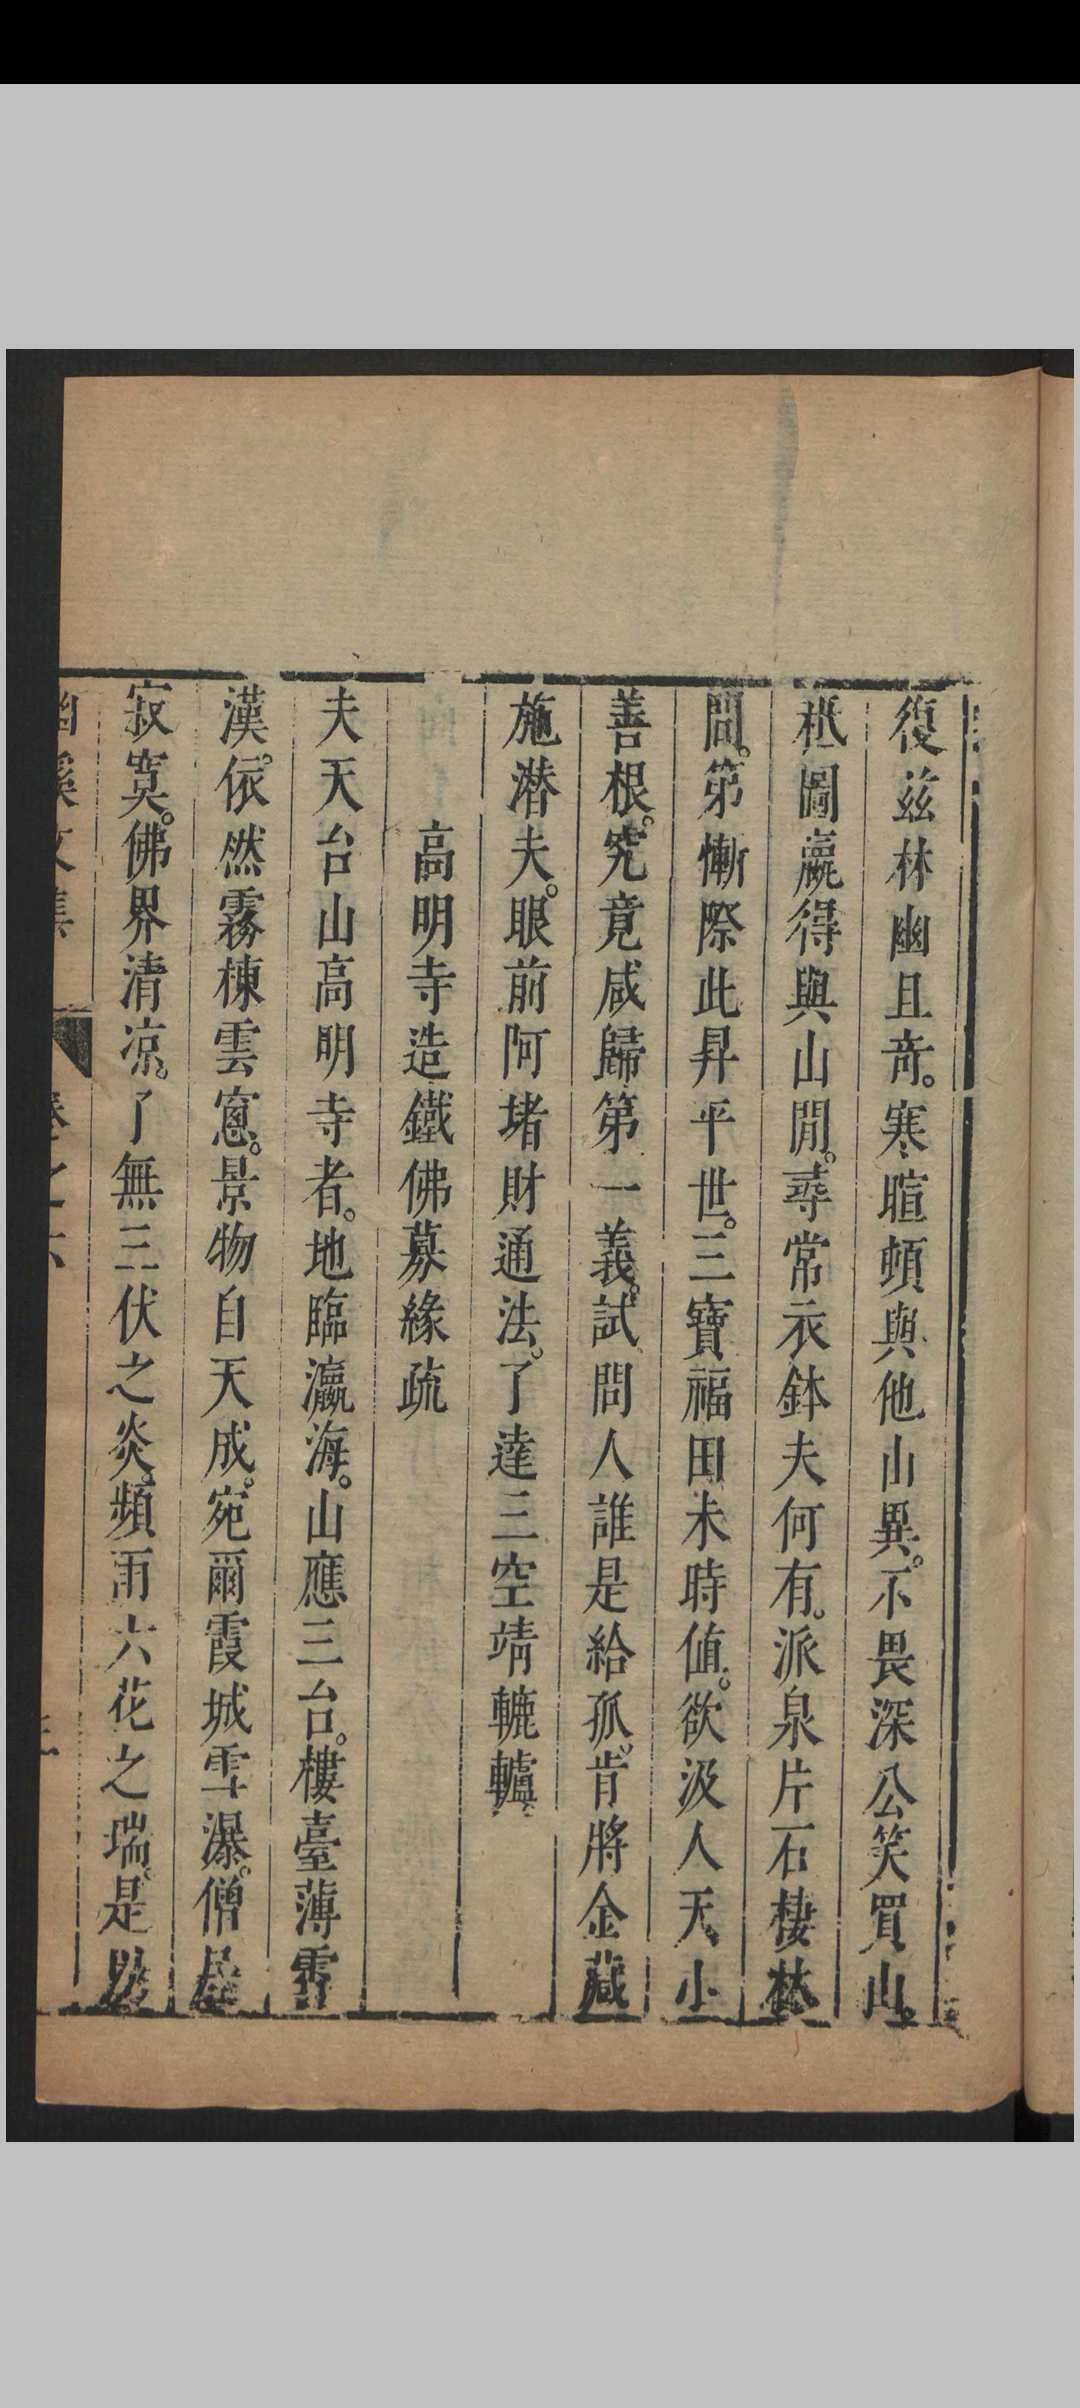 復兹林幽且竒。寒暄頓與他山異。不畏深公笑買山。
秪圖贏得與山閒。尋常衣鉢夫何有。派泉片石棲林
間。第慚際此昇平世。三寶福田未時值。欲汲人天小
善根。究竟咸歸第一義。試問人誰是給孤。肯將金藏
施潛夫。眼前阿堵財通法。了達三空靖轆轤
高明寺造鐵佛募緣疏
夫天台山高明寺者。地臨瀛海。山應三台。樓臺薄霄
漢。依然霧棟雲窓。景物自天成。宛爾霞城雪瀑。僧居
寂寞。佛界清凉。了無三伏之炎。頻雨六花之瑞。是以
幽溪文集 卷之六